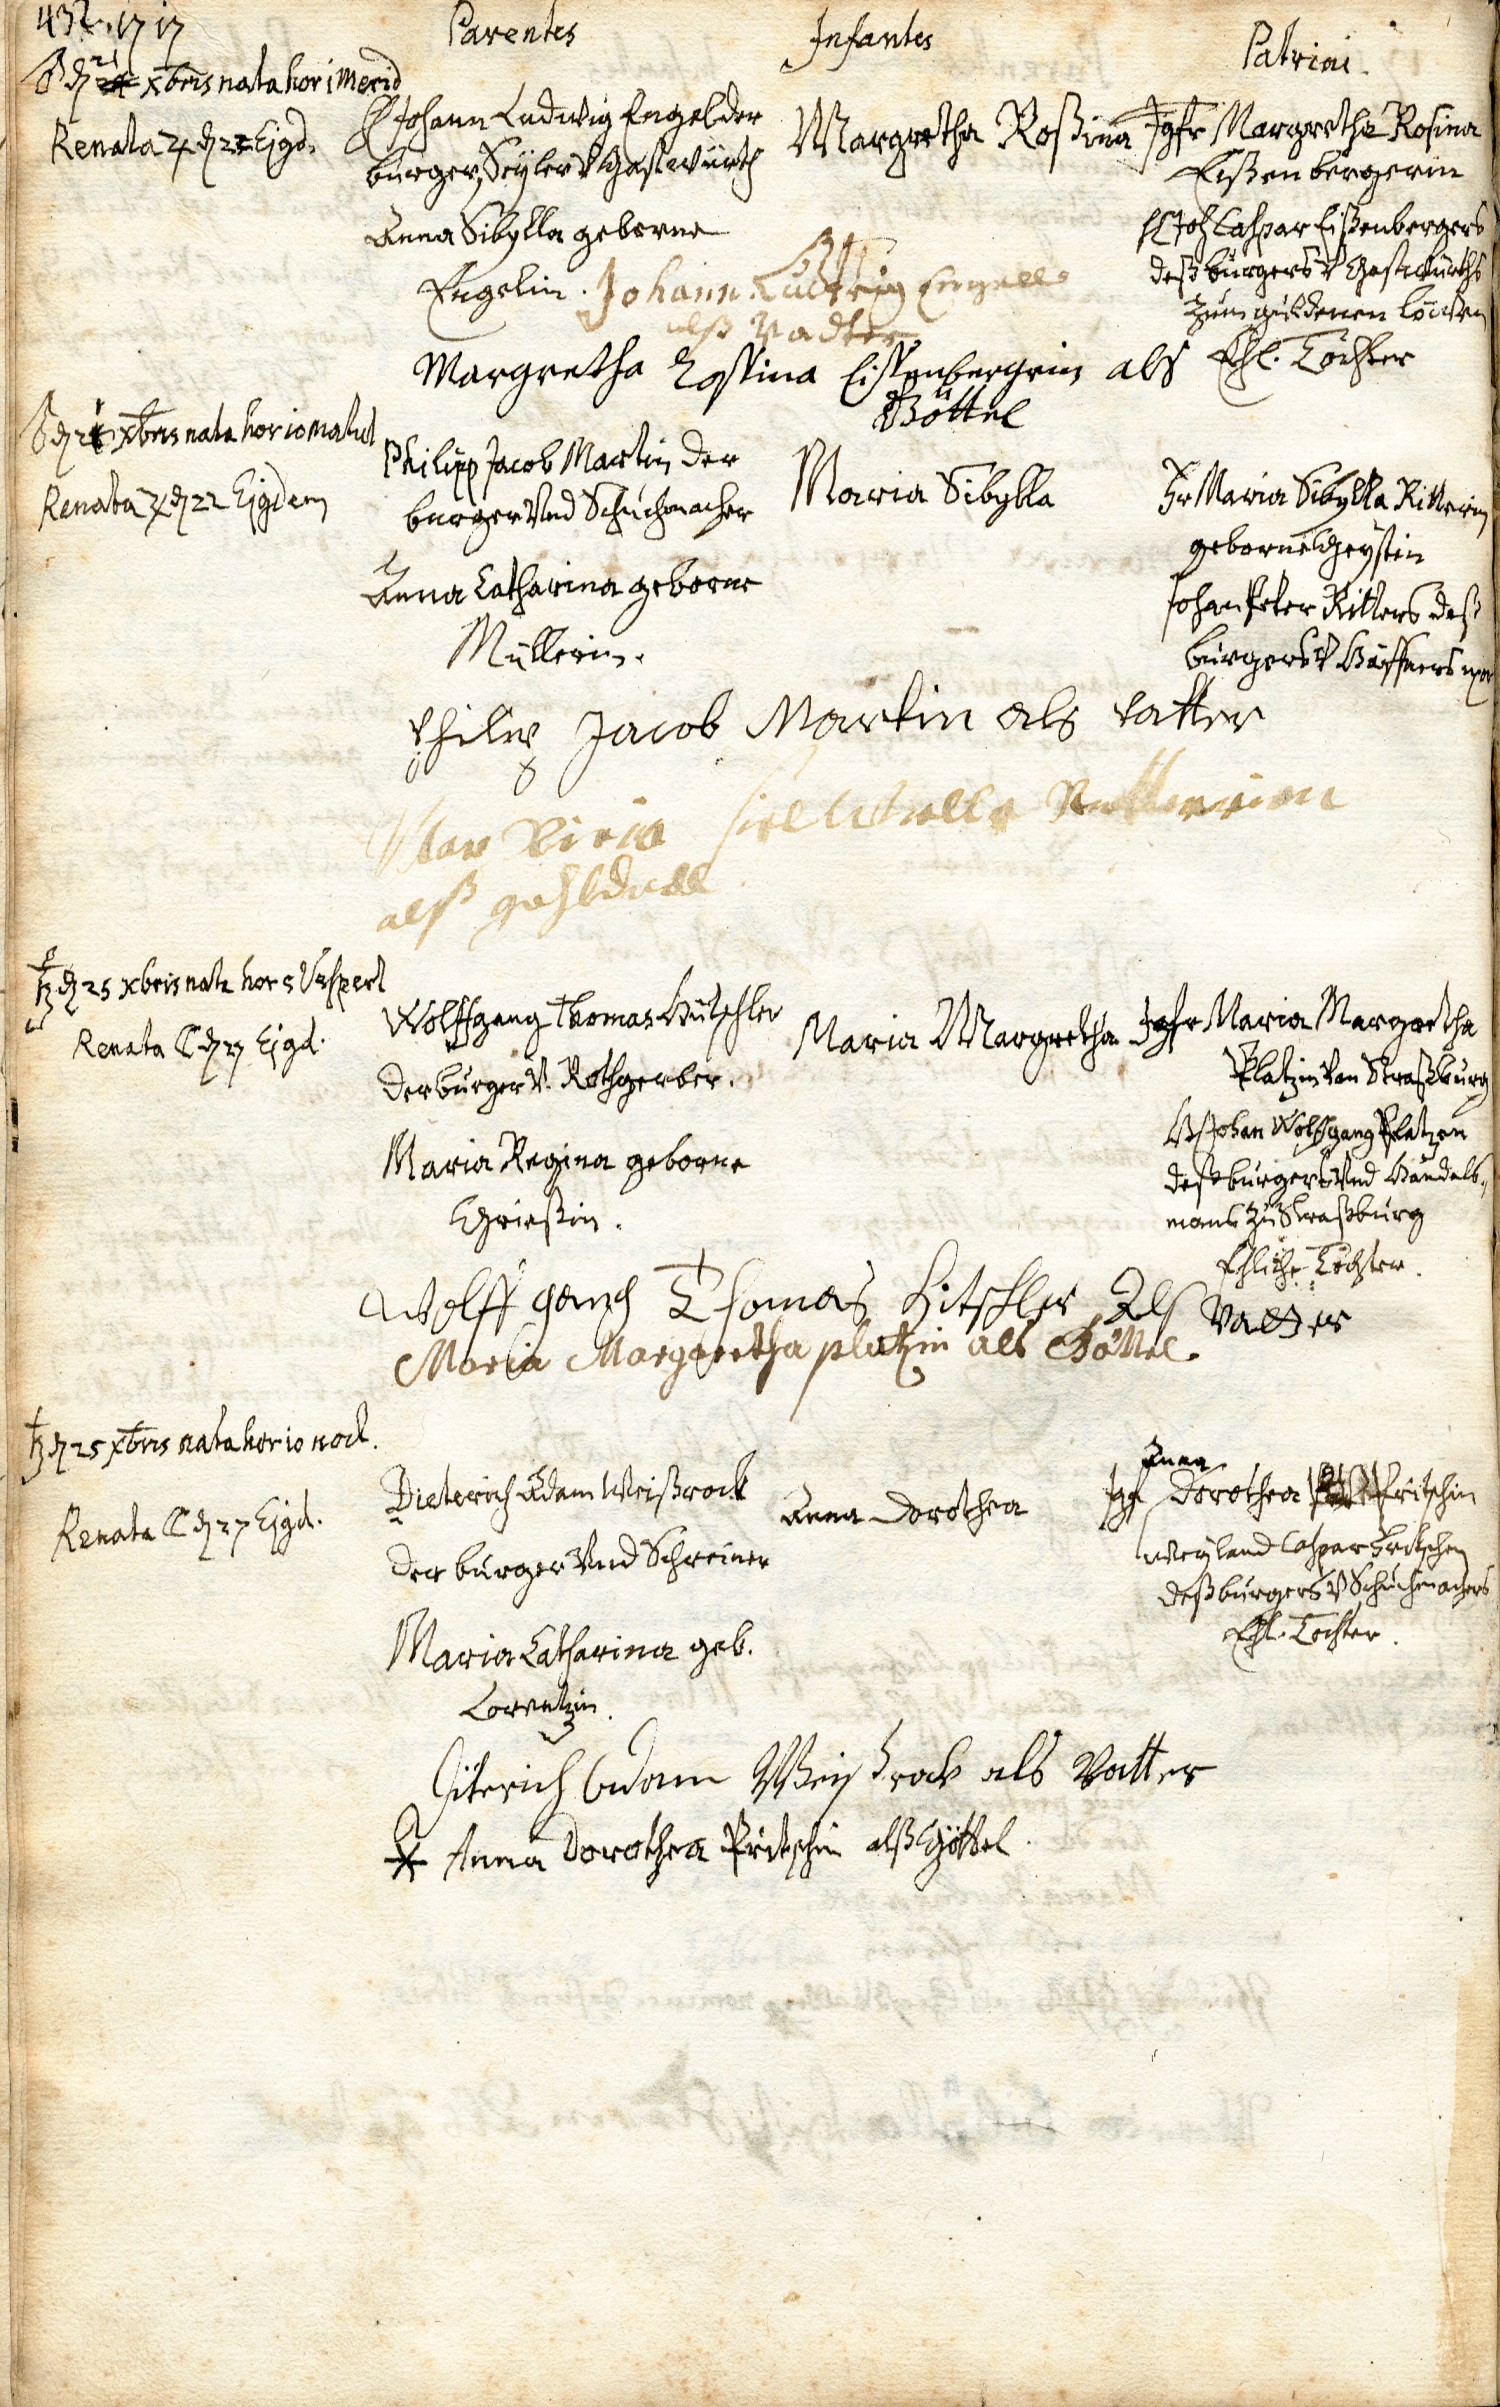 432. 17 17
Parentes
Infantes
Patrini.
♂ d 21 xbris nata hor 1 Merid
Renata ♃ d 23 Ejgd.
H Johann Ludwig Engel der
burger, Seyler V Gastwürth
Anna Sibylla geborne
Engelin.
Margretha Roßina
Jgfr Margretha Rosina
Eißenbergerin
H Joh Caspar Eißenbergers
deß burgers V Gastwürths
zum güldenen Löwen
Ehl. Tochter
Johann Ludwig Engell
alß Vadter
Margretha Rossina Eissenbergrin als
Göttel
♂ d 21 xbris nata hor 10 matut
Renata ♃ d 22 Ejgdem
Philipp Jacob Martin der
burger Vnd Schuchmacher
Anna Catharina geborne
Müllerin.
Maria Sibylla
Fr Maria Sibylla Ritterin
geborne Geystin
Johan Peter Ritters deß
burgers V Haffners
Philip Jacob Martin als Vatter
Ritterrien
alß
♄ d 25 xbris nata hor 5 Vespert
Renata ☾ d 27 Ejgd.
Wolffgang Thomas Hütschler
der burger V. Rothgerber.
Maria Regina geborne
Grießin.
Maria Margretha
Jgfr Maria Margretha
Platzin Von Straßburg
H Johan Wolffgang Platzen
deß burgers Vnd Handels-
mans zu Straßburg
Ehliche Tochter.
Wolff gang Thomas Hitschler Als Vatter
Maria Margaretha platzin als Göttel.
♄ d 25 xbris nata hor 10 noct.
Renata ☾ d 27 Ejgd.
Dieterich Adam Weißrock
der burger Vnd Schreiner
Maria Catharina geb.
Lorentzin.
Anna Dorothea
Anna
Jgf Dorothea Fritschin
Weyland Caspar Fritschen
deß burgers V Schuchmachers
Ehl. Tochter.
Diterich Adam Weißrock als Vatter
Anna Dorothea Fritschin alß Göttel.